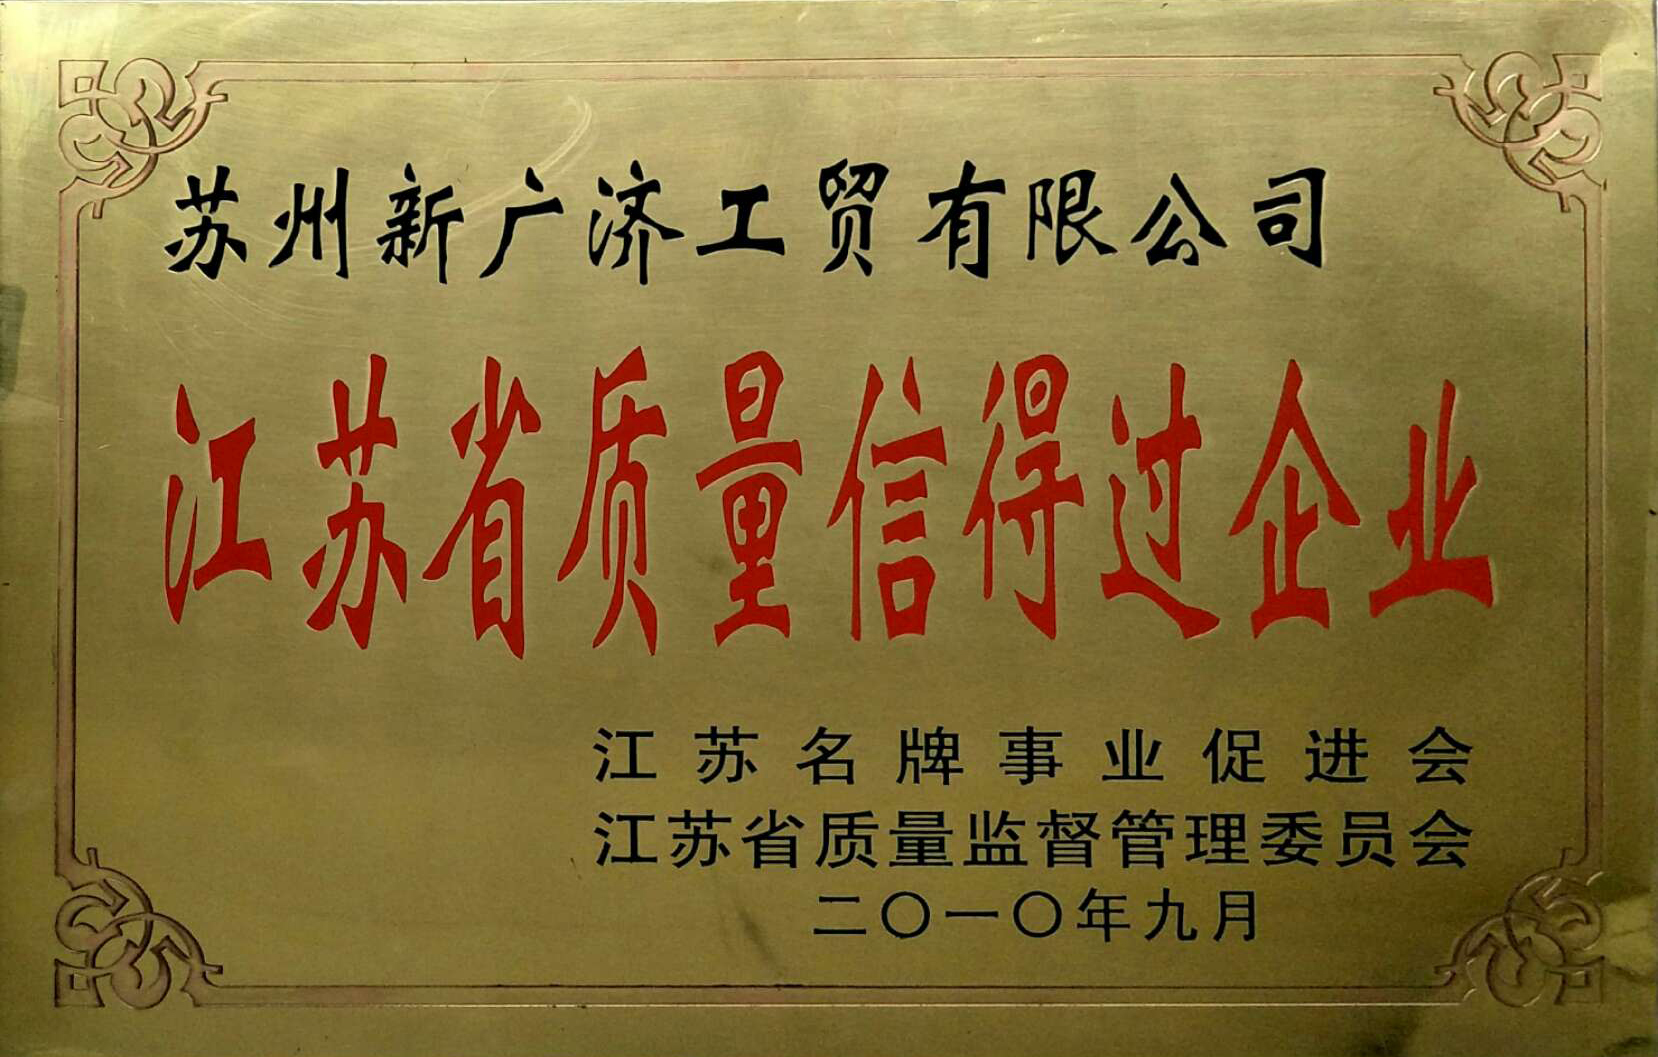 苏州新广济工贸有限公司
江苏省质量信得过企业
江苏名牌事业促进会
江苏省质量监督管理委员会
二〇一〇年九月